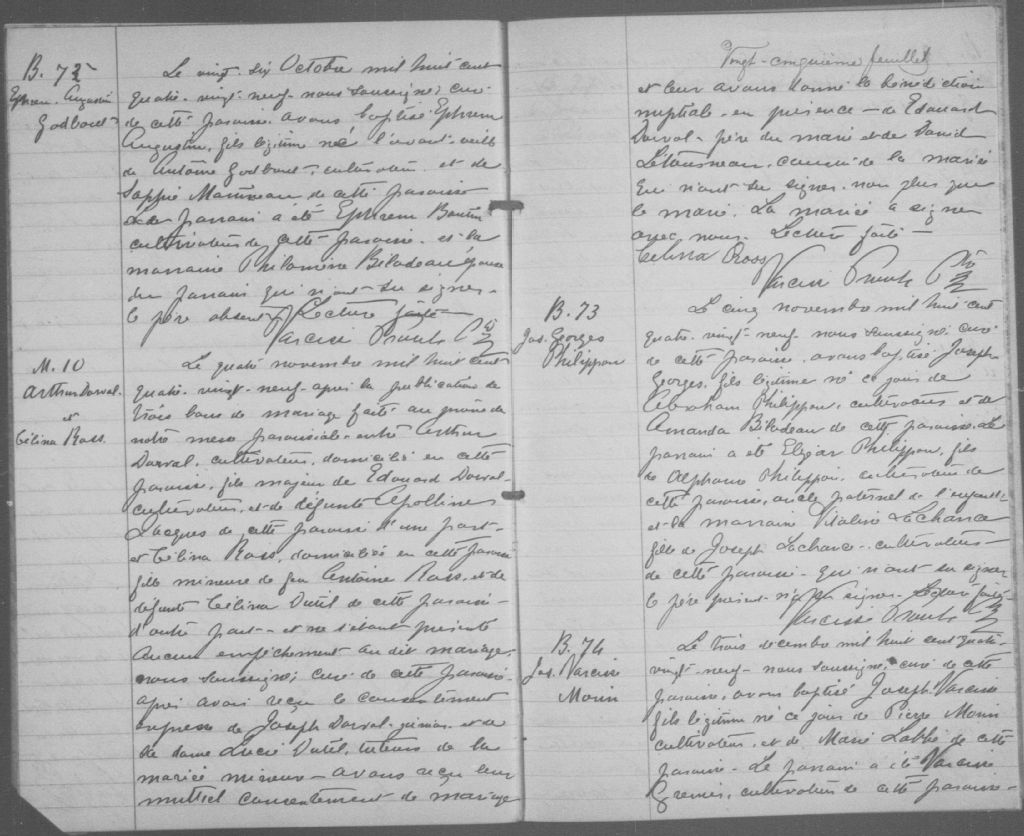 B. 72
Ephrem-Augustin
Godbout
Le vingt-six Octobre mil huit cent
quatre-vingt-neuf nous soussigné, curé
de cette paroisse avons baptisé Ephrem
Augustin, fils légitime né l'avant-veille
de Antoine Godbout, cultivateur, et de
Sophie Marineau de cette paroisse
Le parrain a été Ephrem Boutin
cultivateur de cette paroisse et la
marraine Philomène Bilodeau épouse
du parrain qui n'ont su signer.
le père absent. Lecture faite
Narcisse Proulx Ptre
M. 10
Arthur Dorval
et
Célina Ross.
Le quatre novembre mil huit cent
quatre-vingt-neuf, après la publication de
trois bans de mariage faite au prône de
notre messe paroissiale, entre Arthur
Dorval, cultivateur, domicilié en cette
paroisse, fils majeur de Edouard Dorval
cultivateur, et de défunte Apolline
Jacques de cette paroisse d'une part-
et Célina Ross, domiciliée en cette paroisse
fille mineure de feu Antoine Ross, et de
défunte Célina Dutil de cette paroisse-
d'autre part- et ne s'étant présenté
aucun empêchement au dit mariage,
nous soussigné, curé de cette paroisse,
après avoir reçu le consentement
express de Joseph Dorval et de
de dame Lucie Dutil, tuteurs de la
mariée mineure - avons reçu leur
mutuel consentement de mariage
Vingt-cinquième feuillet
et leur avons donné la bénédiction
nuptiale en présence - de Edouard
Dorval père du marié et de David
Létourneau, cousin de la mariée
qui n'ont su signer, non plus que
le marié. La mariée a signé
avec nous. Lecture faite -
Célina Ross
Narcisse Proulx Ptre
B. 73
Jos. Georges
Philippon
Le cinq novembre mil huit cent
quatre-vingt-neuf nous soussigné, curé
de cette paroisse, avons baptisé Joseph
Georges, fils légitime né ce jour de
Abraham Philippon, cultivateur et de
Amanda Bilodeau de cette paroisse. Le
parrain a été Elzéar Philippon, fils
de Alphonse Philippon, cultivateur de
cette paroisse, oncle paternel de l'enfant-
et la marraine Vitaline Lachance
fille de Joseph Lachance - cultivateur -
de cette paroisse - qui n'ont su signer
le père présent n'a su signer. Lecture faite
Narcisse Proulx Ptre
B. 74
Jos. Narcisse
Morin
Le trois décembre mil huit cent quatre-
vingt-neuf nous soussigné, curé de cette
paroisse, avons baptisé Joseph Narcisse
fils légitime né ce jour de Pierre Morin
cultivateur, et de Marie Labbé de cette
paroisse - Le parrain a été Narcisse
Grenier, cultivateur de cette paroisse -